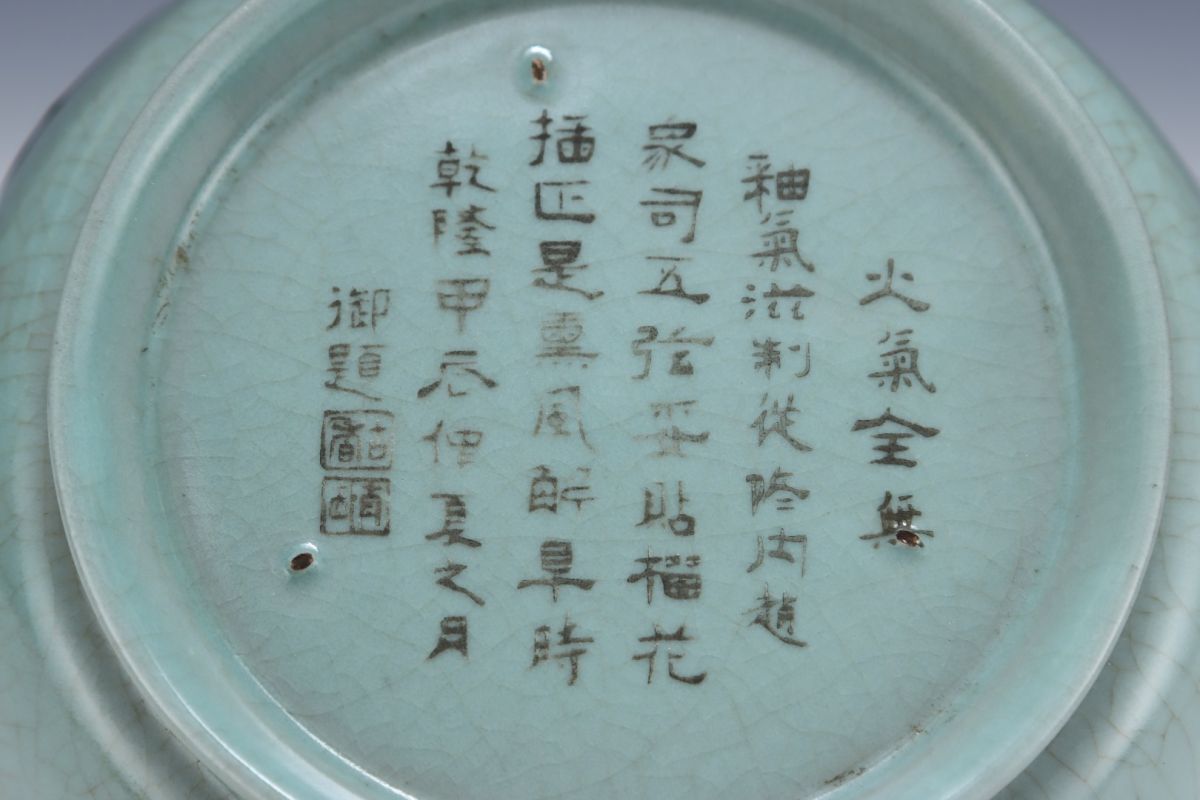 火氣全無
釉氣滋制從修内趙
家司五弦妥貼榴花
插正是熏風解阜時
乾隆甲辰仲夏之月
御題